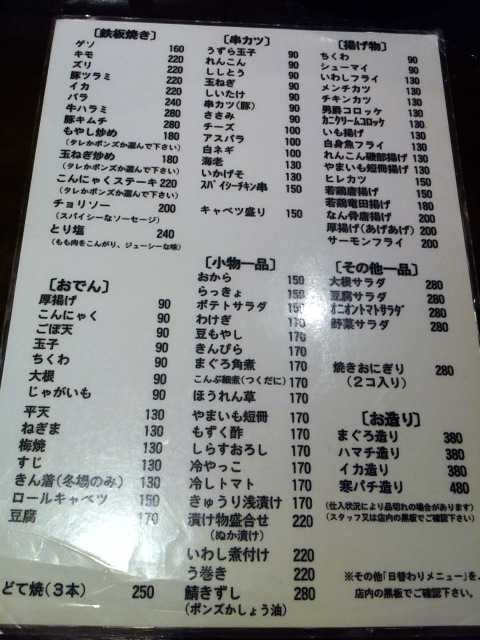 [鉄板焼き]
ゲソ 160
キモ 220
ズリ 220
豚ツラミ 220
イカ 220
バラ 240
牛ハラミ 280
豚キムチ 280
もやし炒め 180
(タレかポンズか選んで下さい)
玉ねぎ炒め 180
(タレかポンズか選んで下さい)
こんにゃくステーキ 220
(タレかポンズか選んで下さい)
チョリソー 200
(スパイシーなソーセージ)
とり塩 240
(もも肉をこんがり、ジューシーな味)
[おでん]
厚揚げ 90
こんにゃく 90
ごぼ天 90
玉子 90
ちくわ 90
大根 90
じゃがいも 90
平天 130
ねぎま 130
梅焼 130
すじ 130
きん着(冬場のみ) 130
ロールキャベツ 150
豆腐 170
どて焼(3本) 250
[串カツ]
うずら玉子 90
れんこん 90
ししとう 90
玉ねぎ 90
しいたけ 90
串カツ(豚) 90
ささみ 90
チーズ 100
アスパラ 100
白ネギ 100
海老 130
いかげそ 130
スパイシーチキン串 150
キャベツ盛り 150
[小物一品]
おから 150
らっきょ 150
ポテトサラダ 150
わけぎ 170
豆もやし 170
きんぴら 170
まぐろ角煮 170
こんぶ細煮(つくだに) 170
ほうれん草 170
やまいも短冊 170
もずく酢 170
しらすおろし 170
冷やっこ 170
冷しトマト 170
きゅうり浅漬け 170
漬け物盛合せ 220
(ぬか漬け)
いわし煮付け 220
う巻き 220
鯖きずし 280
(ポンズかしょう油)
[揚げ物]
ちくわ 90
シューマイ 90
いわしフライ 130
メンチカツ 130
チキンカツ 130
男爵コロッケ 130
カニクリームコロッケ 130
いも揚げ 130
白身魚フライ 130
れんこん磯部揚げ 130
やまいも短冊揚げ 130
ヒレカツ 150
若鶏唐揚げ 150
若鶏竜田揚げ 180
なん骨唐揚げ 200
厚揚げ(あげあげ) 200
サーモンフライ 200
[その他一品]
大根サラダ 280
豆腐サラダ 280
オニオントマトサラダ 280
野菜サラダ 280
焼きおにぎり 280
(2コ入り)
[お造り]
まぐろ造り 380
ハマチ造り 380
イカ造り 380
寒パチ造り 480
(仕入状況により品切れの場合があります)
(スタッフ又は店内の黒板でご確認下さい)
※その他「日替わりメニュー」を、
店内の黒板でご確認下さい。